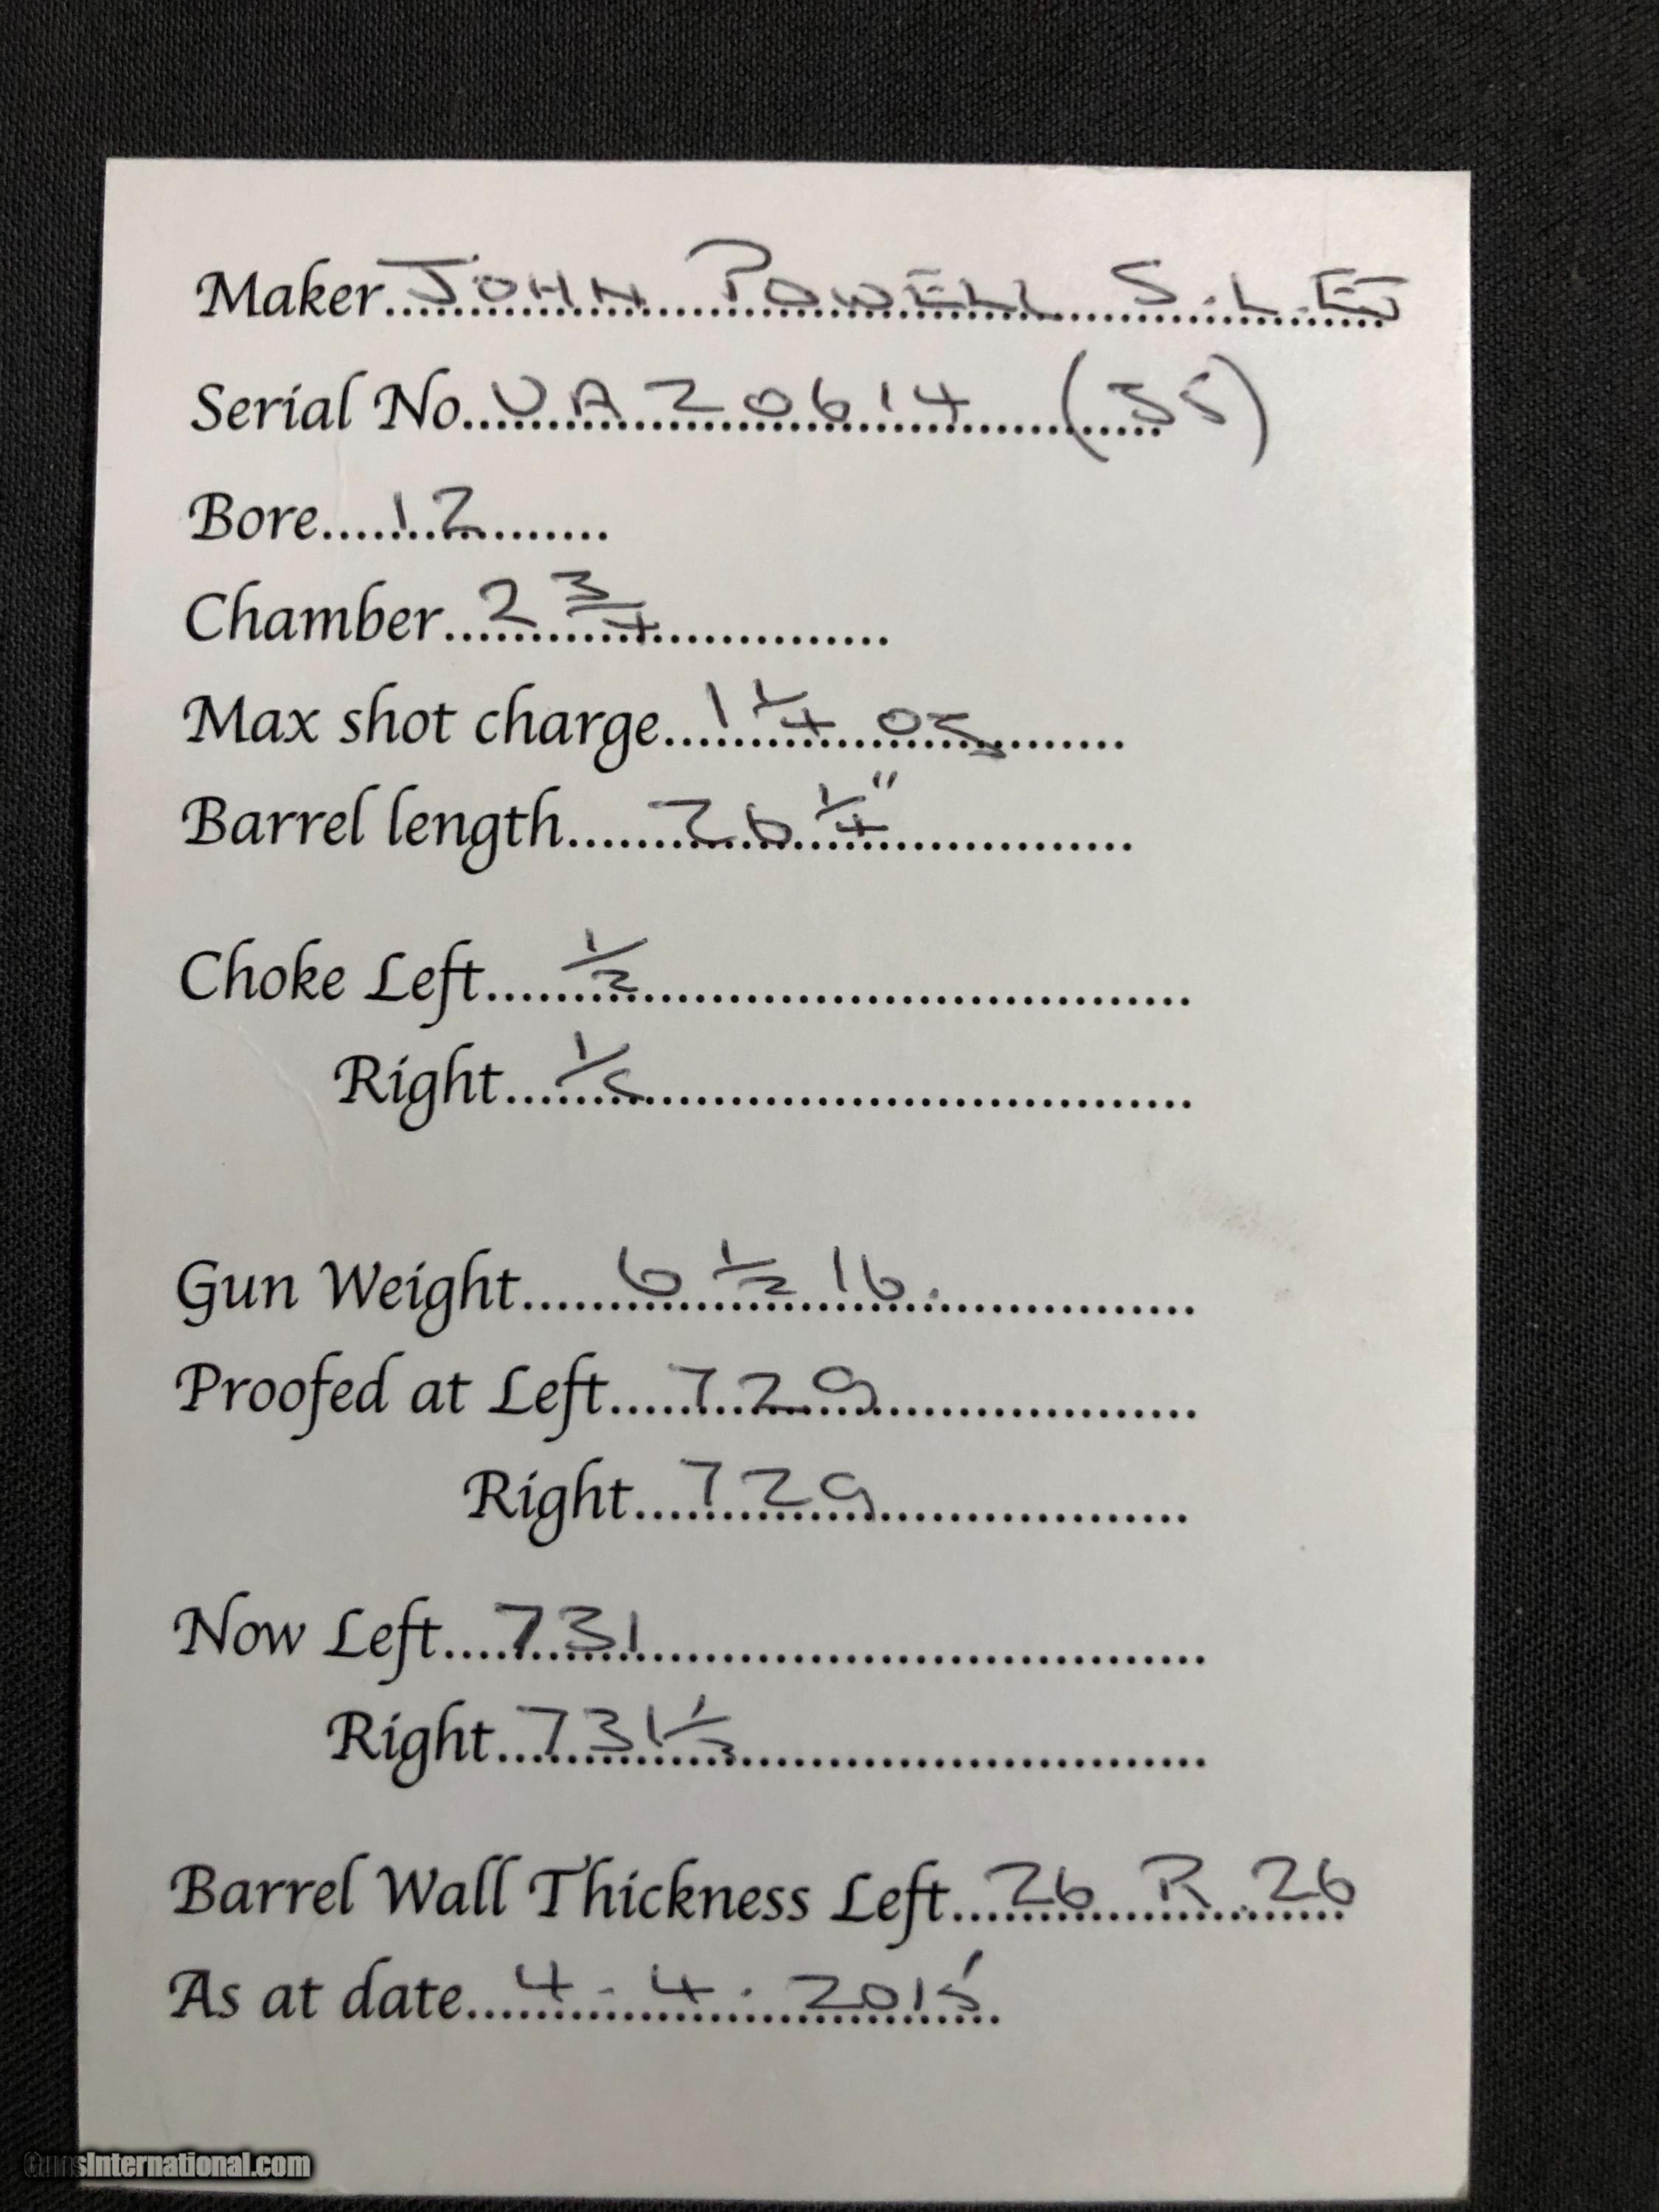 Maker JOHN POWELL S.L.EJ
Serial No. UA20614 (35)
Bore 12
Chamber 2 3/4
Max shot charge 1 1/4 oz
Barrel length 26 1/4"
Choke Left 1/2
Right
Gun Weight 6 1/2 lb.
Proofed at Left 729
Right 729
Now Left 731
Right 731
Barrel Wall Thickness Left 26 R. 26
As at date 4-4.2015
GunsInternational.com